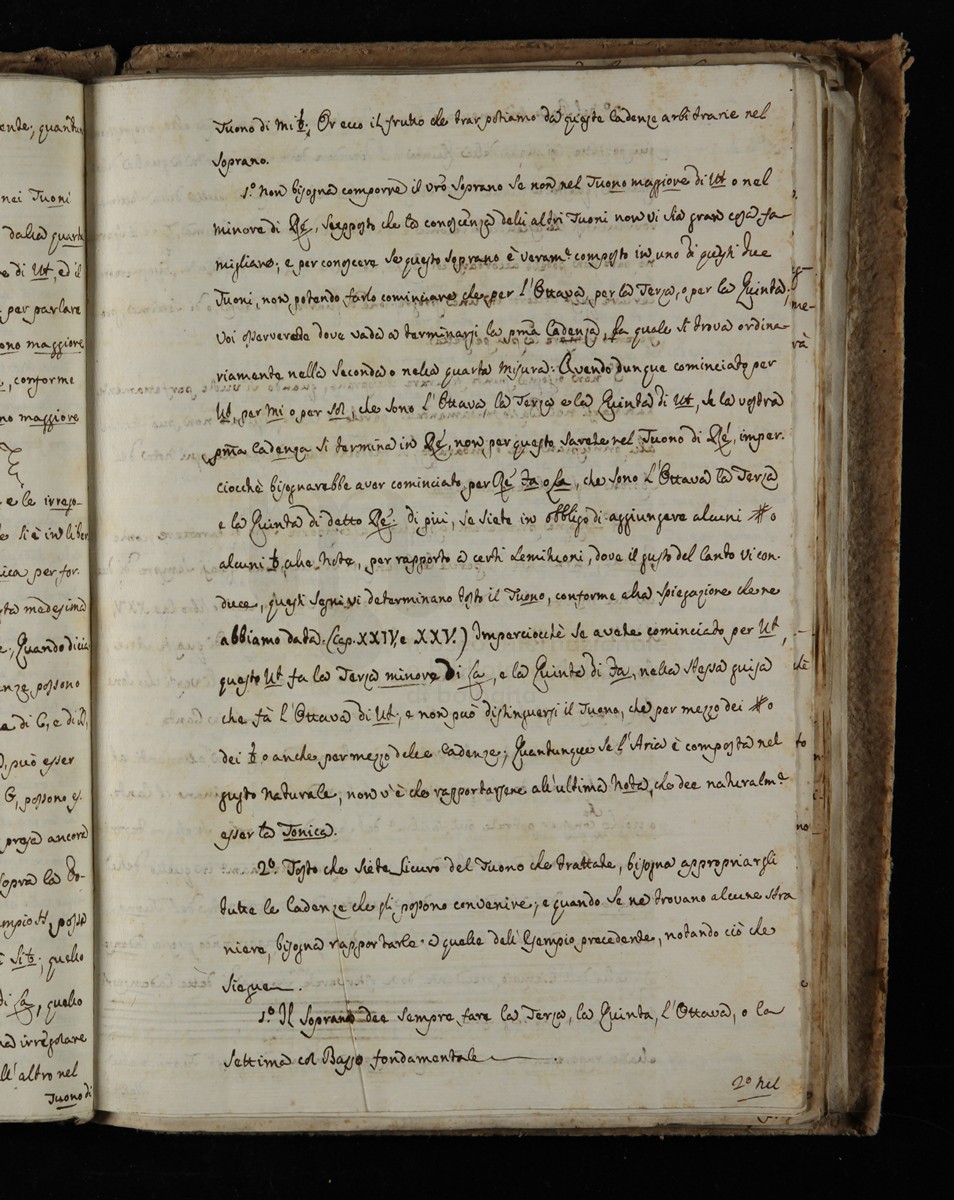 ente, quantun
nei Tuoni
dalla quarta
e di Ut, ed il
per parlare
ono maggiore
, conforme
no maggiore
e le irrego-
e si è in liber
ica per for-
sta medesima
e, Quando dicia
enze possono
e di C, e di D,
può esser
G, possono es
presa ancora
sopra la Do-
empio H, posso
Si♭; quello
di La, quello
na irregolare
ll'altro nel
Tuono di
Tuono di Mi♭. Or ecco il frutto che trar possiamo da queste Cadenze arbitrarie nel
Soprano.
1.º Non bisogna comporre il vrõ Soprano se non nel Tuono maggiore di Ut o nel
minore di Re, supposto che la conoscenza delli altri Tuoni non vi sia gran cosa fa-
migliare; e per conoscere se questo Soprano è veram.e composto in uno di questi due
Tuoni, non potendo farlo cominciare che per l'Ottava, per la Terza, o per la Quinta;
voi osserverete dove vada a terminarsi la pma Cadenza, la quale si trova ordina-
riamente nella seconda o nella quarta misura: Avendo dunque cominciato per
Ut, per Mi o per Sol, che sono l'Ottava, la Terza e la Quinta di Ut, se la vostra
pma Cadenza si termina in Re, non per questo sarete nel Tuono di Re, imper-
ciocchè bisognarebbe aver cominciato per Re Fa o La, che sono l'Ottava la Terza
e la Quinta di detto Re: di più, se siete in obbligo di aggiungere alcuni # o
alcuni ♭ alle Note, per rapporto a certi Semituoni, dove il gusto del Canto vi con-
duce, questi segni vi determinano tosto il Tuono, conforme alla spiegazione che ne
abbiamo data. (Cap. XXIV, e XXV.) Imperciocchè se avete cominciato per Ut,
questo Ut fa la Terza minore di La, e la Quinta di Fa, nella stessa guisa
che fà l'Ottava di Ut; e non può distinguersi il Tuono, che per mezzo dei # o
dei ♭ o anche per mezzo delle Cadenze; Quantunque se l'Aria è composta nel
gusto naturale, non v'è che rapportarsene all'ultima Nota, che dee naturalm.e
esser la Tonica.
2.º Tosto che siete sicuro del Tuono che trattate, bisogna appropriargli
tutte le Cadenze che gli possono convenire; e quando se ne trovano alcune stra
niere, bisogna rapportarle a quelle dell'Esempio precedente, notando ciò che
siegue.
1.º Il Soprano dee sempre fare la Terza, la Quinta, l'Ottava, o la
settima col Basso fondamentale.
2º Nel